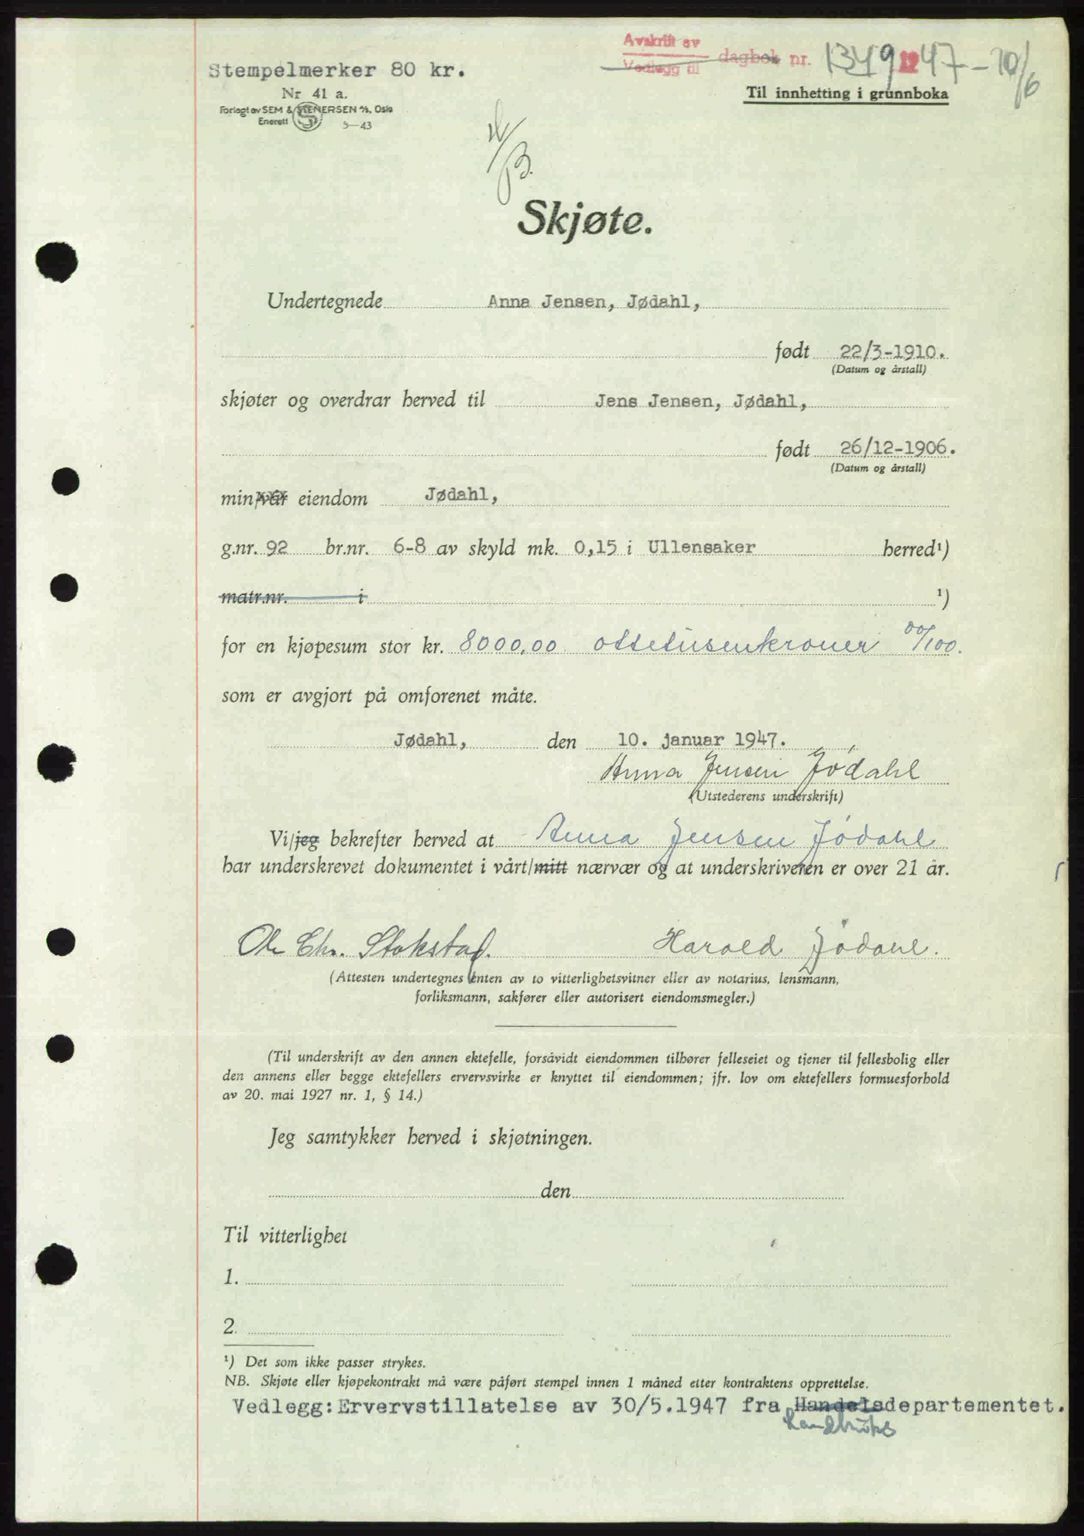 Stempelmerker 80 kr.
Avskrift av
Vedlegg til dagbok nr. 1349 1947-10/6
Nr 41 a.
Til innhetting i grunnboka
Forlagt av SEM & STENERSEN A/S, Oslo
Enerett 3-43
Skjøte.
Undertegnede Anna Jensen, Jødahl,
født 22/3-1910.
(Datum og årstall)
skjøter og overdrar herved til Jens Jensen, Jødahl,
født 26/12-1906.
(Datum og årstall)
min/vår eiendom Jødahl,
g.nr. 92 br.nr. 6-8 av skyld mk. 0,15 i Ullensaker herred¹)
matr.nr. i ¹)
for en kjøpesum stor kr. 8000,00 ottetusenkroner 00/100.
som er avgjort på omforenet måte.
Jødahl, den 10. januar 1947.
Anna Jensen Jødahl
(Utstederens underskrift)
Vi/jeg bekrefter herved at Anna Jensen Jødahl
har underskrevet dokumentet i vårt/mitt nærvær og at underskriveren er over 21 år.
Ole Chr. Stokstad. Harald Jødahl.
(Attesten undertegnes enten av to vitterlighetsvitner eller av notarius, lensmann,
forliksmann, sakfører eller autorisert eiendomsmegler.)
(Til underskrift av den annen ektefelle, forsåvidt eiendommen tilhører felleseiet og tjener til fellesbolig eller
den annens eller begge ektefellers ervervsvirke er knyttet til eiendommen; jfr. lov om ektefellers formuesforhold
av 20. mai 1927 nr. 1, § 14.)
Jeg samtykker herved i skjøtningen.
den
Til vitterlighet
1.
2.
¹) Det som ikke passer strykes.
NB. Skjøte eller kjøpekontrakt må være påført stempel innen 1 måned etter kontraktens opprettelse.
Vedlegg:Ervervstillatelse av 30/5.1947 fra Handelsdepartementet.
Landbruks